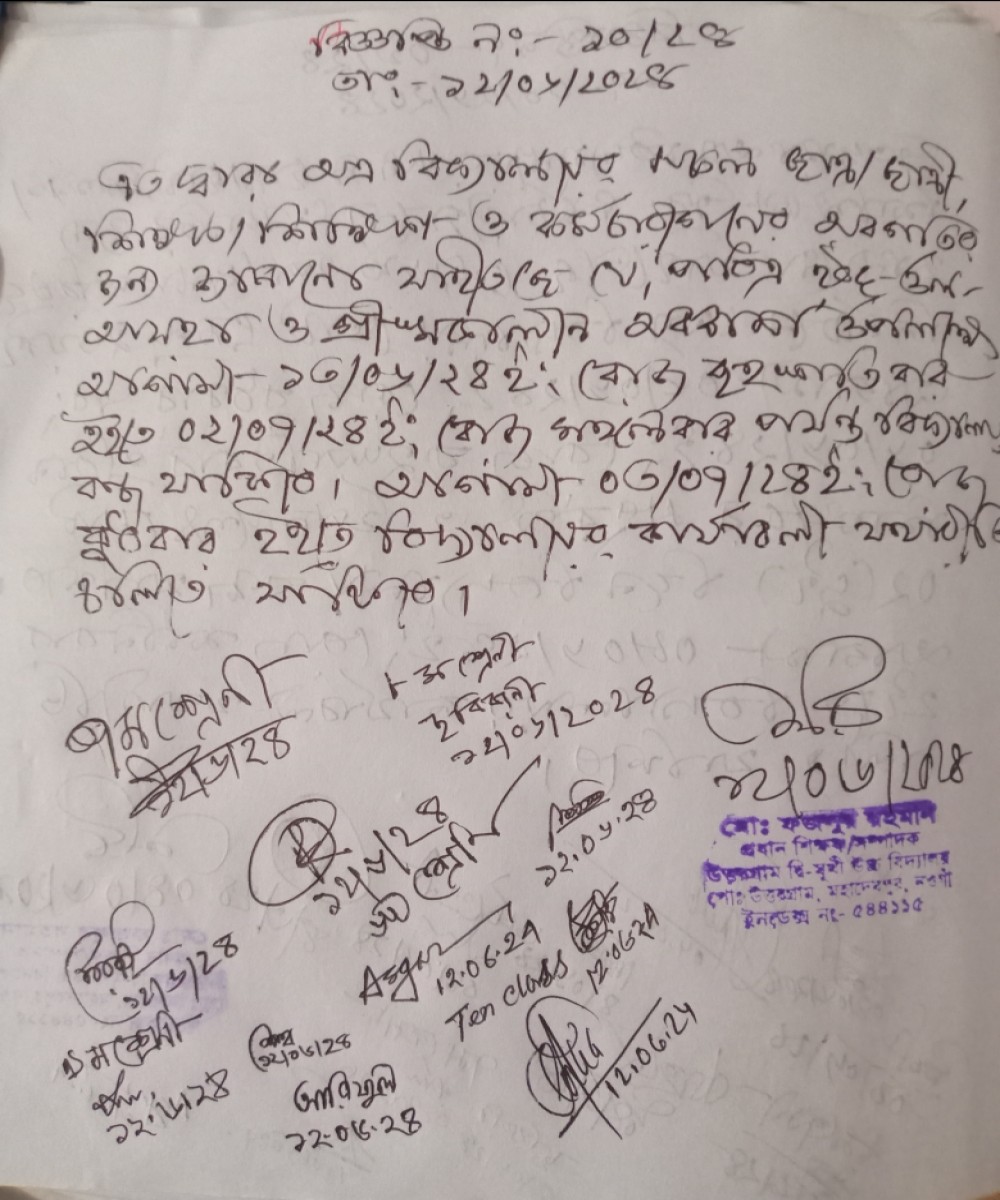 বিজ্ঞপ্তি নং:- ১০/২৪
তাং:- ১২/০৬/২০২৪
এত দ্বারা অত্র বিদ্যালয়ের সকল ছাত্র/ছাত্রী,
শিক্ষক/শিক্ষিকা ও কর্মচারীগনের অবগতির
জন্য জানানো যাইতেছে যে, পবিত্র ঈদ-উল-
আযহা ও গ্রীষ্মকালীন অবকাশ উপলক্ষে
আগামী ১৩/০৬/২৪ইং রোজ বৃহস্পতিবার
হইতে ০২/০৭/২৪ইং রোজ মঙ্গলবার পর্যন্ত বিদ্যালয়
বন্ধ থাকিবে। আগামী ০৩/০৭/২৪ইং রোজ
বুধবার হইতে বিদ্যালয়ের কার্যাবলী যথারীতি
চলিতে থাকিবে।
৭ম শ্রেণী
১২/৬/২৪
৮ম শ্রেণী
১২/০৬/২০২৪
১২/০৬/২০২৪
১২/৬/২৪
৬ষ্ঠ শ্রেণি
১২.০৬.২৪
মোঃ ফজলুর রহমান
প্রধান শিক্ষক/সম্পাদক
উত্তরগ্রাম দ্বি-মুখী উচ্চ বিদ্যালয়
পোঃ উত্তরগ্রাম, মহাদেবপুর, নওগাঁ
ইনডেক্স নং- ৫৪৪১১৫
১২/৬/২৪
৯ম শ্রেণী
12.06.24
Ten class
12.06.24
১২/০৬/২৪
১২.৬.২৪
আরিফুল
১২.০৬.২৪
12.06.24